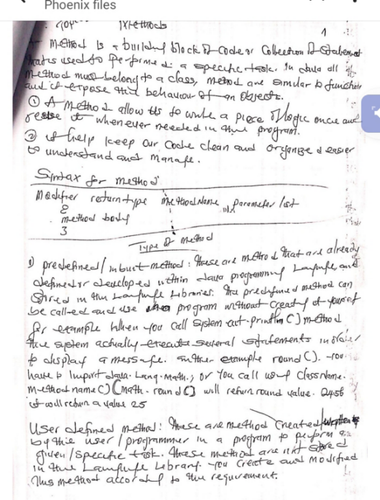 Phoenix files
Methods
1
Method is a building block of code or collection of statement
that is used to perform a specific task. In Java all
method must belong to a class, method are similar to function
and it expose the behaviour of an objects.
① A method allow us to write a piece of logic once and
reuse it whenever needed in the program.
② it help keep our code clean and organize d easier
to understand and manage.
Syntax for method
Modifier return type methodName Parameter list
{
method body
}
Type of method
1) predefined/inbuilt-method: these are method that are already
defined or developed within Java programming Language and
stored in the Language Libraries. the predefined method can
be called and use program without
for example when you call system.out.println() method
the system actually execute several statements in order
to display a message. another example round(). you
have to import Java.Lang.Math., or you call
method name() (math.round() will return round value.
it will return a value 25
User defined method: these are method created/written
by the user/programmer in a program to perform a
given/specific task. these method are not stored
in the Language Library you create and modified
this method according to the requirement.